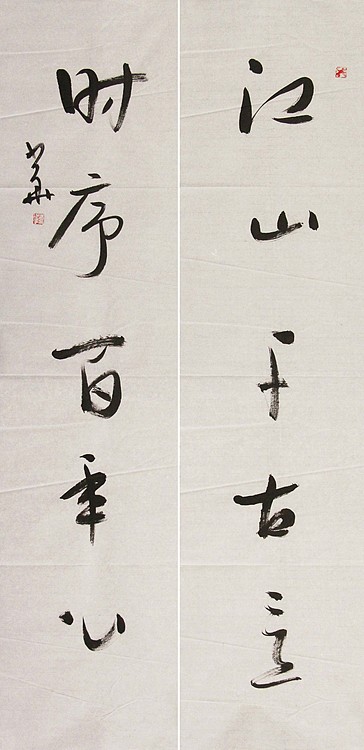 江山千古意
时序百年心
少華